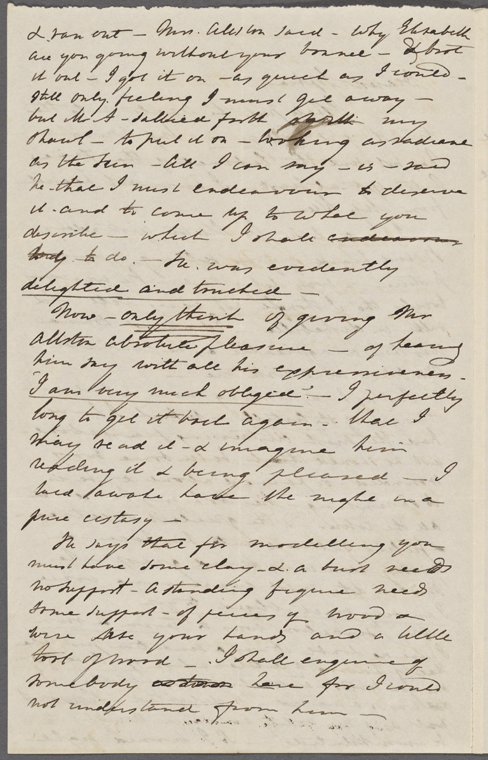 & ran out – Mrs. Allston said – Why Elizabeth
are you going without your bonnet – & brot
it out – I got it on – as quick as I could –
still only feeling I must get away –
but Mr A – sallied forth with my
shawl – to put it on – looking as radiant
as the Sun – All I can say – is – said
he – that I must endeavour to deserve
it – and to come up to what you
describe – which I shall endeavour
to do. – He was evidently
delighted and touched –
Now – only think of giving Mr
Allston absolute pleasure – of hearing
him say with all his expressiveness –
"I am very much obliged." – I perfectly
long to get it back again – that I
may read it – & imagine him
reading it & being pleased – I
laid awake half the night in a
pure ecstasy –
He says that for modelling you
must have some clay – & a bust needs
no support – A standing figure needs
some support – of pieces of wood or
wire Use your hands and a little
tool of wood – I shall enquire of
somebody here for I could
not understand from him –